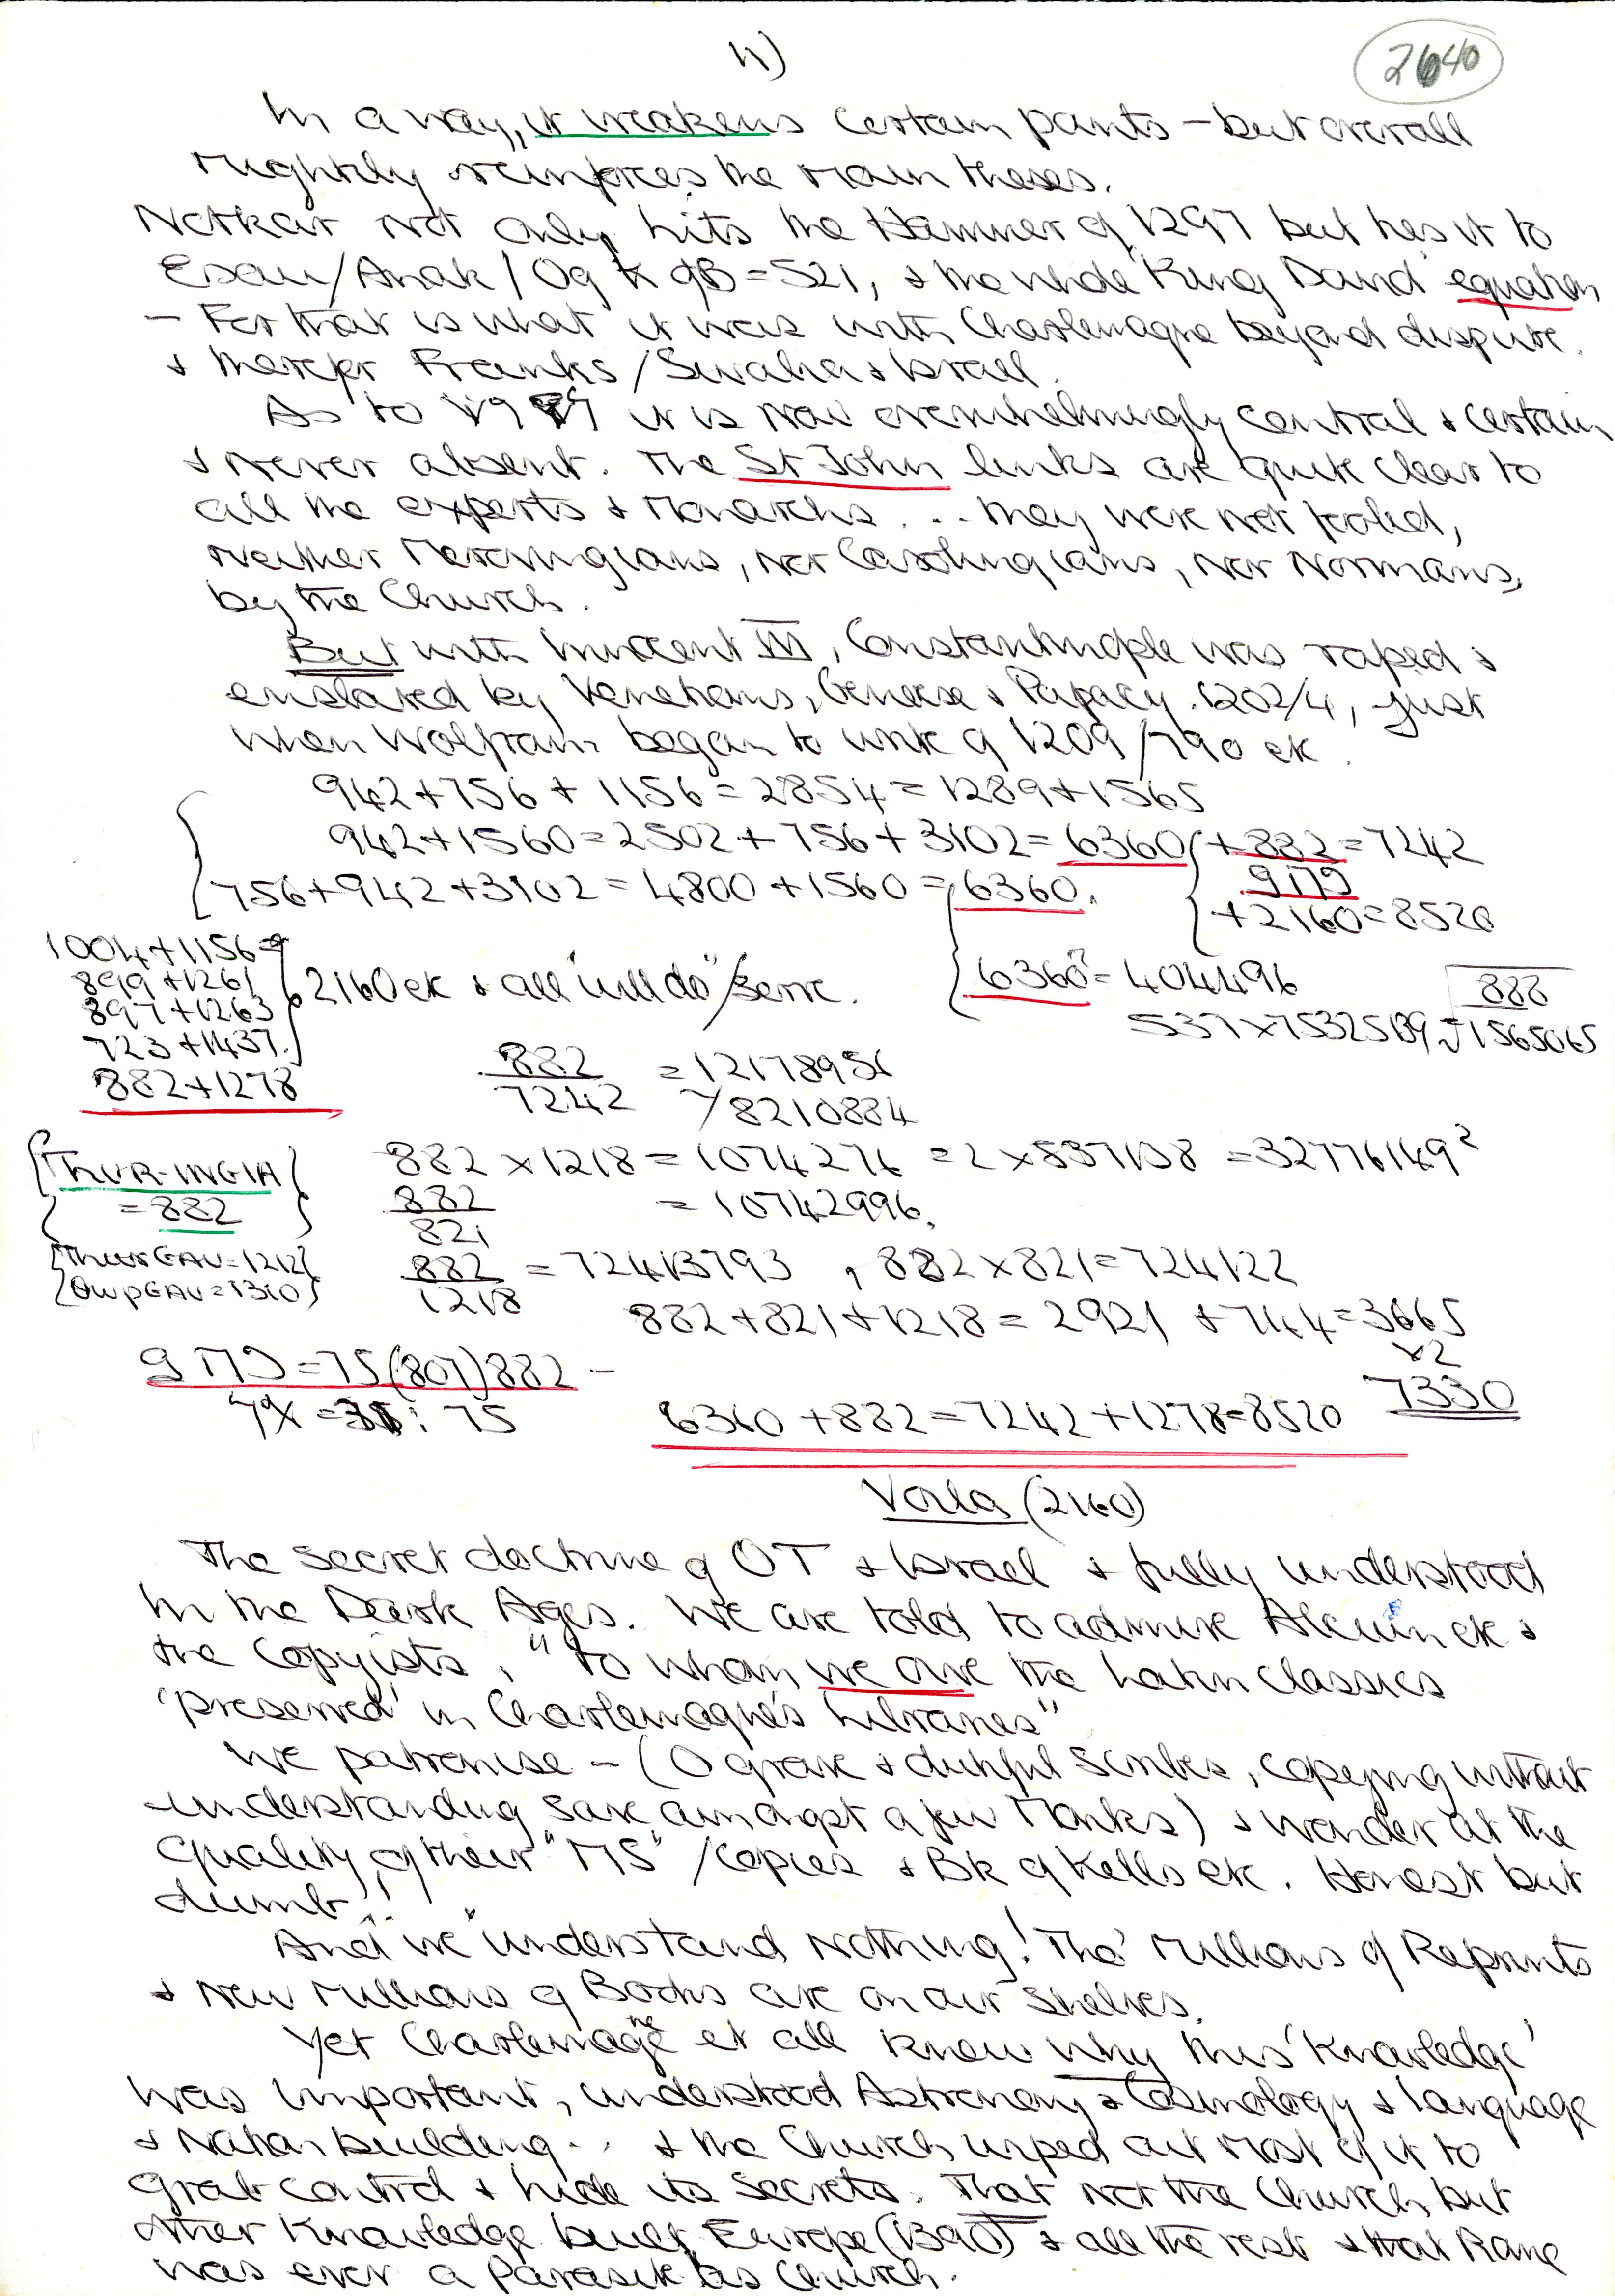 11)
2640
In a way, it weakens certain points - but overall
mightily reinforces the main theses.
Notkar not only hits the Hammer of 1297 but has it to
Esau/Anak/Og K of B = 521, & the whole 'King David' equation
- For that is what it was with Charlemagne beyond dispute.
& therefor Franks/Swabia & Israel.
As to it is now overwhelmingly central & certain
& never absent. The St John links are quite clear to
all the experts & Monarchs ... they were not fooled,
neither Merovingians, nor Carolingians, nor Normans,
by the Church.
But with Innocent III, Constantinople was raped &
enslaved by Venetians, Genoese & Papacy. 1202/4, just
when Wolfram began to write of 1209/790 etc.
942+756+1156=2854=1289+1565
942+1560=2502+756+3102=6360 +882=7242
756+942+3102=4800+1560=6360.
+2160=8520
1004+1156=
899+1261
897+1263
723+1437.
882+1278
2160 etc & all "will do"/serve.
6360²=404496
888
537×
=1565065
882/7242 =12178956
8210884
THUR-INGIA
=882
882×1218=1074276=2×537138=32776149²
882/821 =10742996.
ThurGAU=1212
882/1218 =72413793, 882×821=724122
882+821+1218=2921 +744=3665
×2
7330
=75(807)882 -
6360+882=7242+1278=8520
Voila (2160)
The secret doctrine of OT & Israel & fully understood
in the Dark Ages. We are told to admire Alcuin etc &
the Copyists, "to whom we owe the Latin Classics
'preserved' in Charlemagne's Libraries"
We patronise - (O grave & dutiful Scribes, copying without
understanding save amongst a few Monks) & wonder at the
Quality of their "MS"/Copies & Bk of Kells etc. Honest but
dumb!
And we understand nothing! Tho' millions of Reprints
& new millions of Books are on our shelves.
Yet Charlemagne et all knew why this 'Knowledge'
was important, understood Astronomy & Cosmology & language
& Nation building... & the Church wiped out most of it to
grab control & hide its secrets. That not the Church but
other Knowledge built Europe (1390) & all the rest & that Rome
was ever a Parasite as Church.